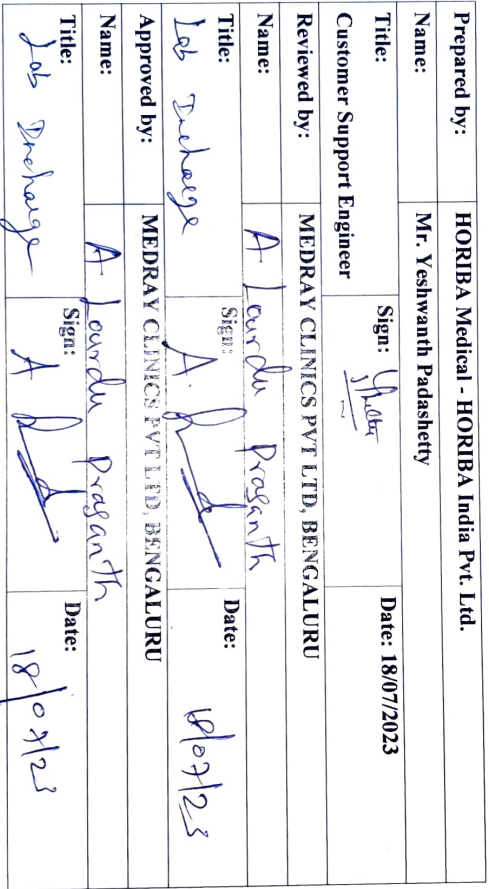 Prepared by: HORIBA Medical - HORIBA India Pvt. Ltd.
Name: Mr. Yeshwanth Padashetty
Title: Customer Support Engineer Sign: Date: 18/07/2023
Reviewed by: MEDRAY CLINICS PVT LTD, BENGALURU
Name: A Lourdu Prasanth
Title: Lab Incharge Sign: Date: 18/07/23
Approved by: MEDRAY CLINICS PVT LTD, BENGALURU
Name: A Lourdu Prasanth
Title: Lab Incharge Sign: Date: 18/07/23